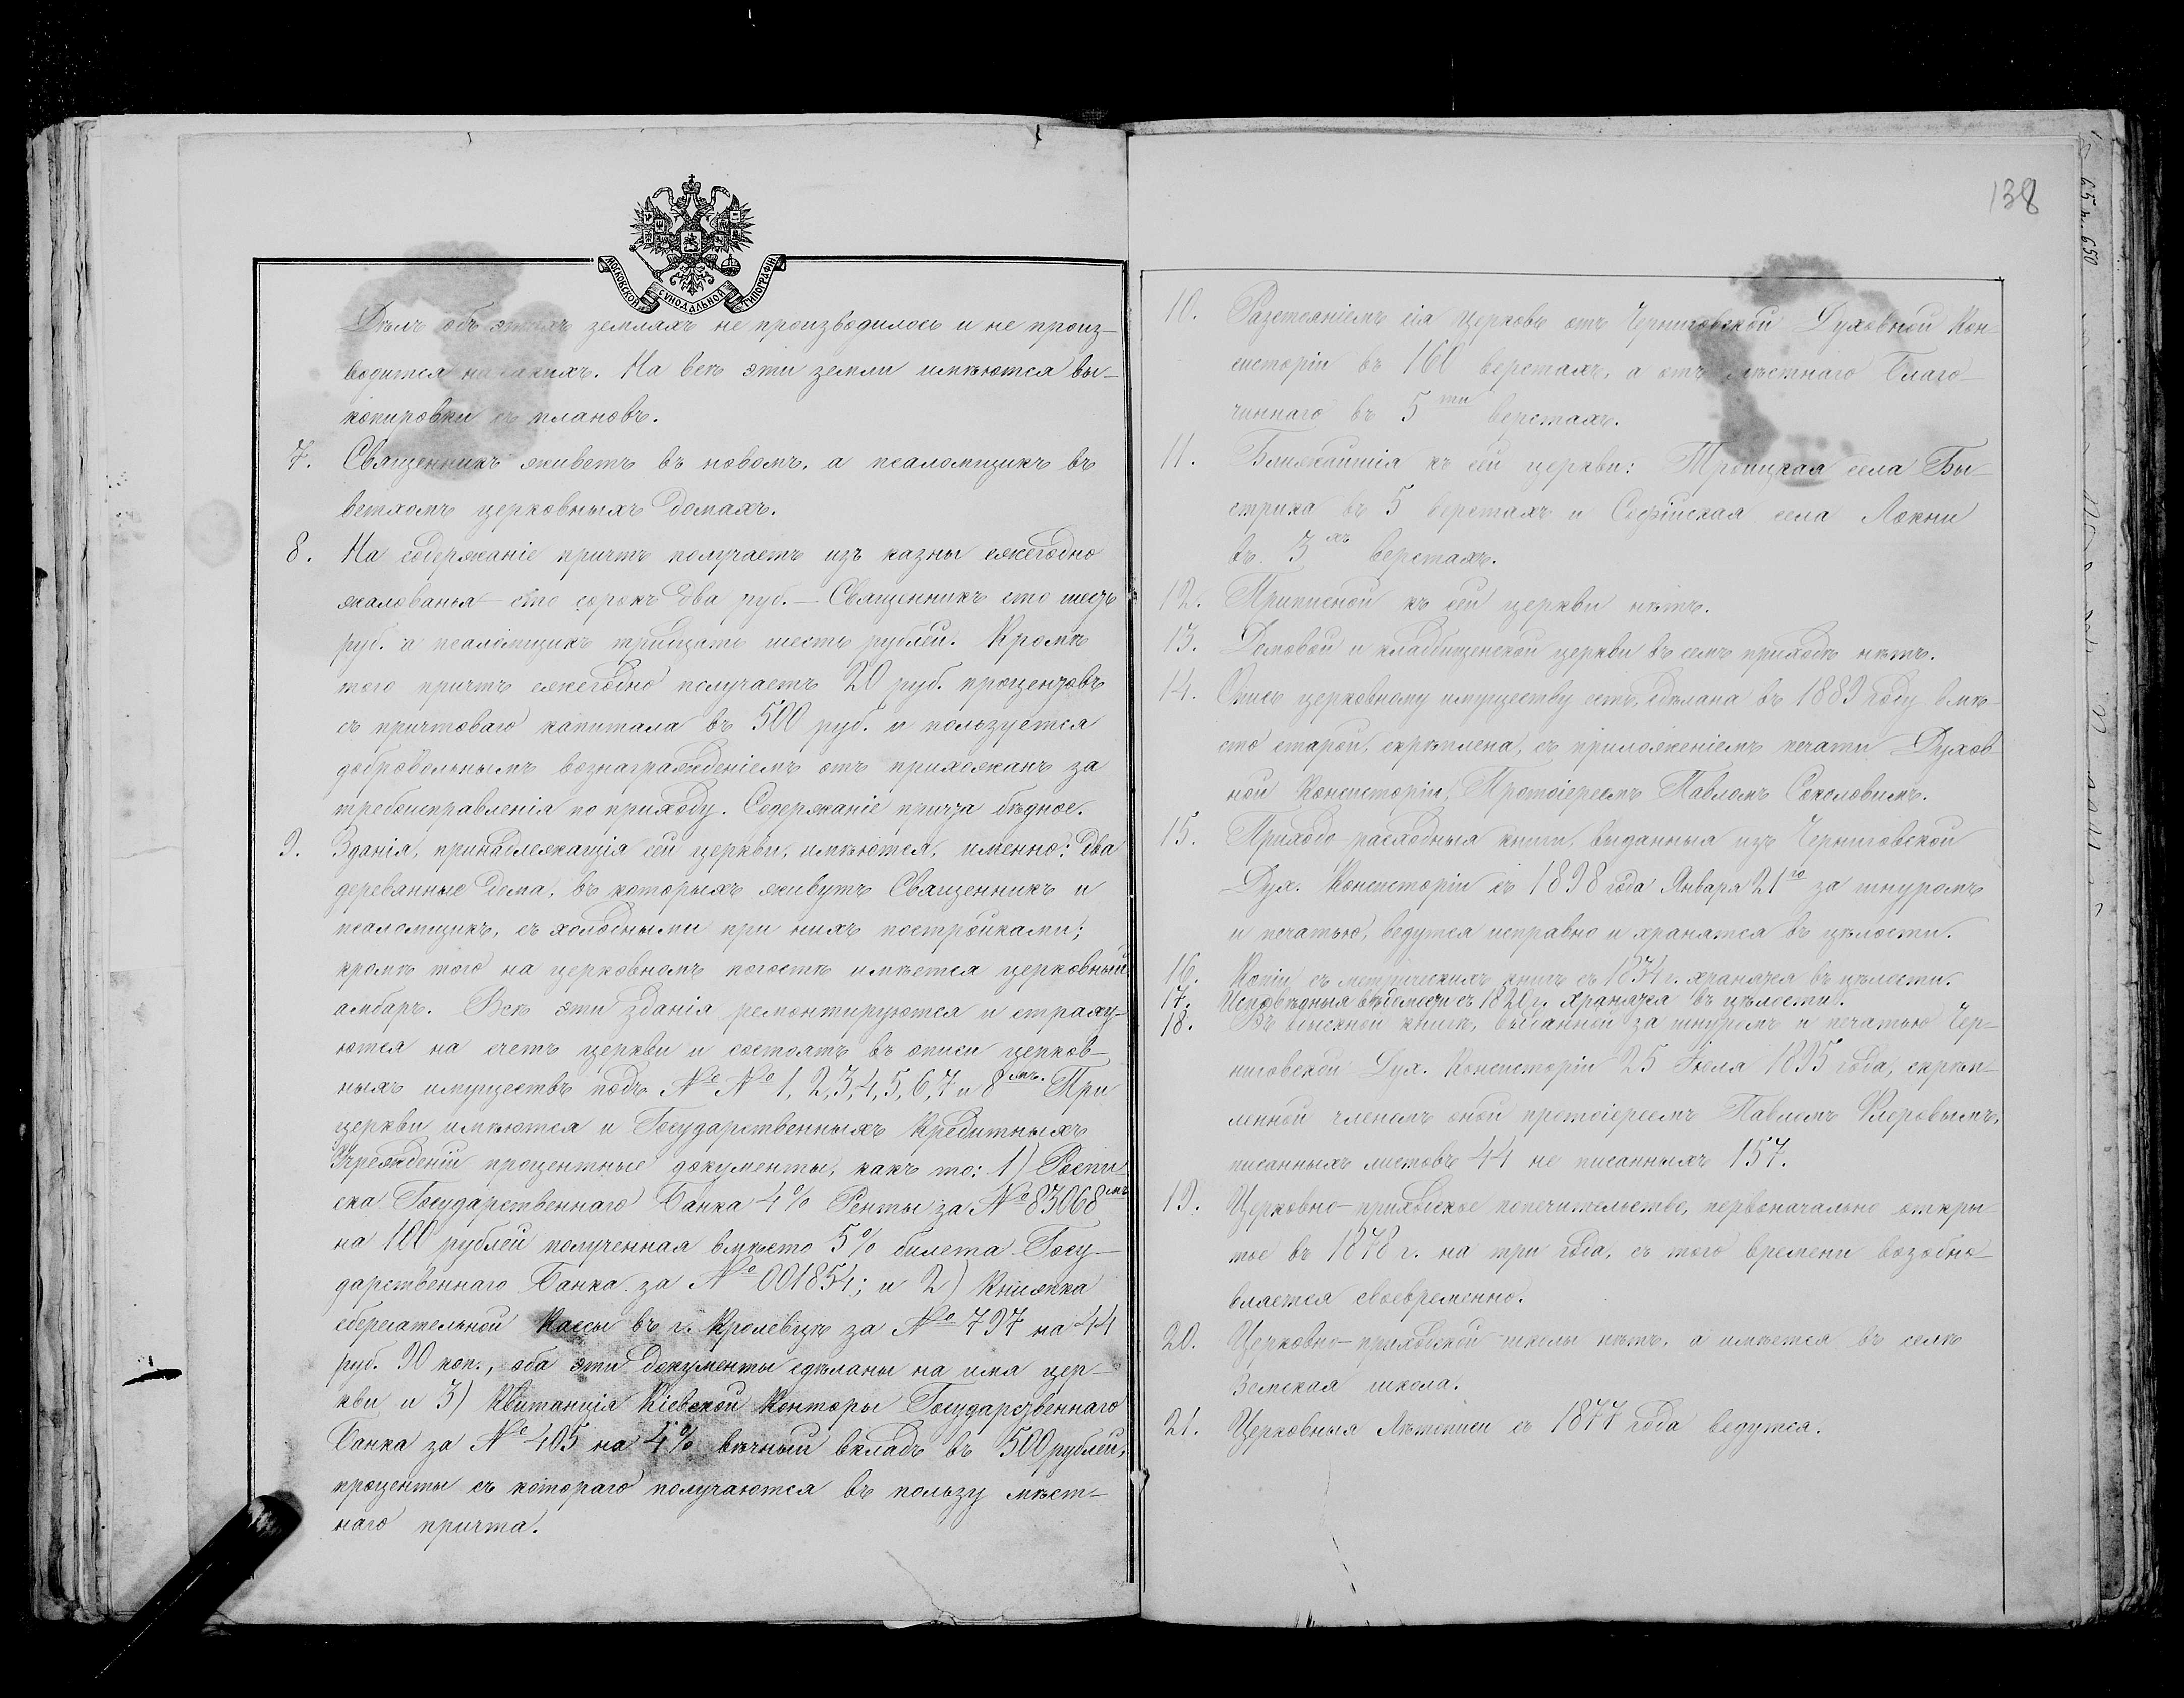 МОСКОВСКОЙ СУНОДАЛЬНОЙ ТИПОГРАФІИ
Дѣлъ объ этихъ земляхъ не производилось и не произ-
водится никакихъ. На всѣ эти земли имѣются вы-
копировки съ плановъ.
7. Священникъ живетъ въ новомъ, а псаломщикъ въ
ветхомъ церковныхъ домахъ.
8. На содержаніе причтъ получаетъ изъ казны ежегодно
жалованья – сто сорокъ два руб. – Священникъ сто шесть
руб. а псаломщикъ тридцать шесть рублей. Кромѣ
того причтъ ежегодно получаетъ 20 руб. процентовъ
съ причтоваго капитала въ 500 руб. и пользуется
добровольнымъ вознагражденіемъ отъ прихожанъ за
требоисправленія по приходу. Содержаніе причта бѣдное.
9. Зданія, принадлежащія сей церкви, имѣются, именно: два
деревянные дома, въ которыхъ живутъ Священникъ и
псаломщикъ, съ холодными при нихъ постройками;
кромѣ того на церковномъ погостѣ имѣется церковный
амбаръ. Всѣ эти зданія ремонтируются и страху-
ются на счетъ церкви и состоятъ въ описи церков-
ныхъ имуществъ подъ №№ 1, 2, 3, 4, 5, 6, 7 и 8мъ. При
церкви имѣются и Государственныхъ Кредитныхъ
Учрежденій процентные документы, какъ то: 1) Роспи-
ска Государственнаго Банка 4% Ренты за № 83068мъ
на 100 рублей полученная вмѣсто 5% билета Госу-
дарственнаго Банка за № 001854; и 2) Книжка
сберегательной Кассы въ г. Кролевцѣ за № 797 на 44
руб. 90 коп., оба эти документы сдѣланы на имя цер-
кви и 3) Квитанція Кіевской Конторы Государственнаго
Банка за № 405 на 4% вѣчный вкладъ въ 500 рублей,
проценты съ котораго получаются въ пользу мѣст-
наго причта.
138
65 x 650
10. Разстояніемъ сія церковь отъ Черниговской Духовной Кон-
систоріи въ 160 верстахъ, а отъ мѣстнаго Благо-
чиннаго въ 5ти верстахъ.
11. Ближайшія къ сей церкви: Троицкая села Бы-
стрика въ 5 верстахъ и Софійская села Локни
въ 3хъ верстахъ.
12. Приписной къ сей церкви нѣтъ.
13. Домовой и кладбищенской церкви въ семъ приходѣ нѣтъ.
14. Опись церковному имуществу есть, сдѣлана въ 1889 году вмѣ-
сто старой, скрѣплена, съ приложеніемъ печати Духов-
ной Консисторіи, Протоіереемъ Павломъ Соколовымъ.
15. Приходо-расходныя книги, выданныя изъ Черниговской
Дух. Консисторіи съ 1898 года Января 21го за шнуромъ
и печатью, ведутся исправно и хранятся въ цѣлости.
16. Копіи съ метрическихъ книгъ съ 1834 г. хранятся въ цѣлости.
17. Исповѣдныя вѣдомости съ 1820 г. хранятся въ цѣлости.
18. Въ обыскной книгѣ, выданной за шнуромъ и печатью Чер-
ниговской Дух. Консисторіи 25 Іюля 1895 года, скрѣп-
ленной членомъ оной протоіереемъ Павломъ Флеровымъ,
писанныхъ листовъ 44 не писанныхъ 157.
19. Церковно-приходское попечительство, первоначально откры-
тое въ 1878 г. на три года, съ того времени возобно-
вляется своевременно.
20. Церковно-приходской школы нѣтъ, а имѣется въ селѣ
Земская школа.
21. Церковныя Лѣтописи съ 1877 года ведутся.